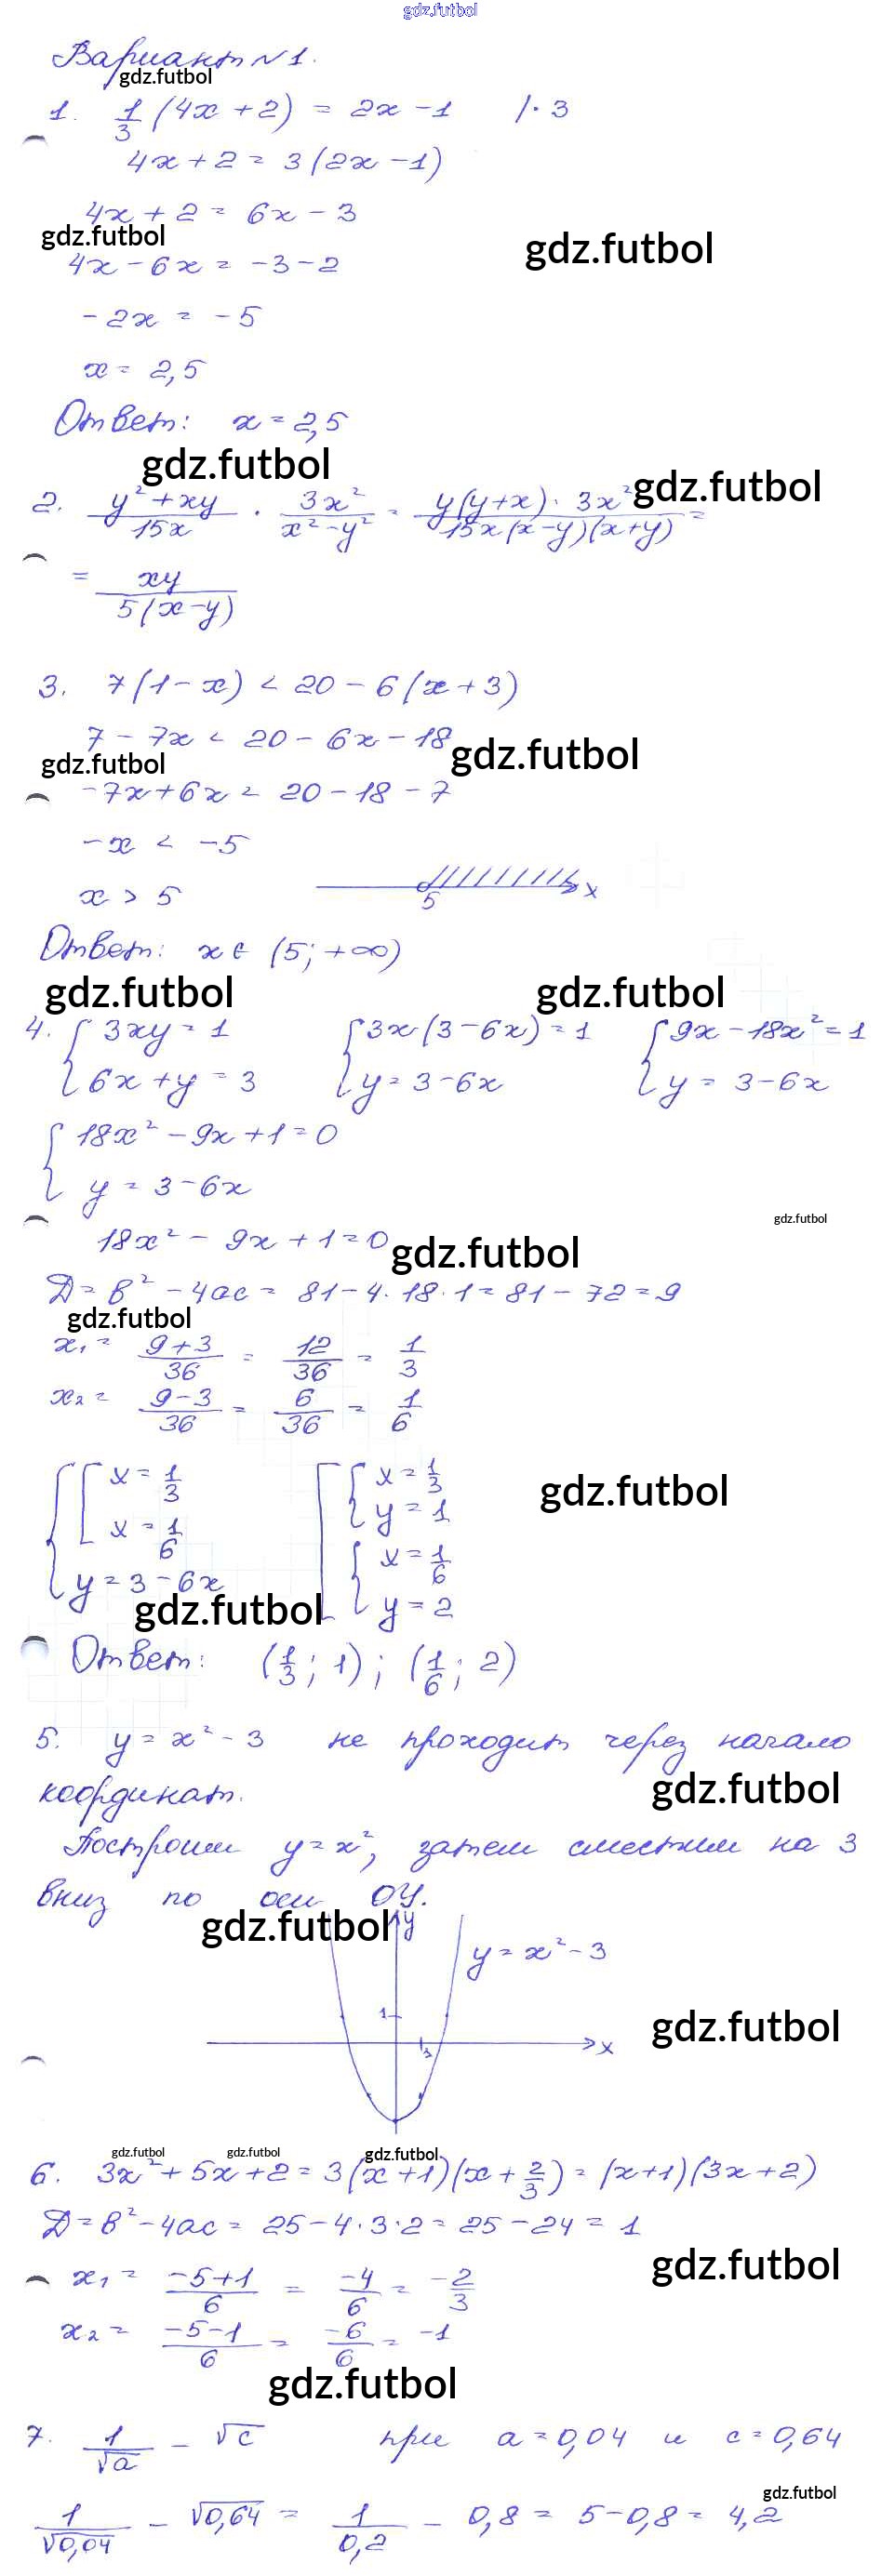 gdz.futbol
Вариант N 1.
gdz.futbol
1. 1/3 (4x + 2) = 2x - 1 /· 3
4x + 2 = 3(2x - 1)
4x + 2 = 6x - 3
gdz.futbol gdz.futbol
4x - 6x = -3 - 2
-2x = -5
x = 2,5
Ответ: x = 2,5
gdz.futbol gdz.futbol
2. (y² + xy)/(15x) · (3x²)/(x² - y²) = (y(y+x) · 3x²)/(15x(x-y)(x+y)) =
= xy/(5(x-y))
3. 7(1 - x) < 20 - 6(x + 3)
7 - 7x < 20 - 6x - 18
gdz.futbol gdz.futbol
-7x + 6x < 20 - 18 - 7
-x < -5
x > 5 5 x
Ответ: x ∈ (5; +∞)
gdz.futbol gdz.futbol
4. { 3xy = 1 { 3x(3 - 6x) = 1 { 9x - 18x² = 1
{ 6x + y = 3 { y = 3 - 6x { y = 3 - 6x
{ 18x² - 9x + 1 = 0
{ y = 3 - 6x
gdz.futbol
18x² - 9x + 1 = 0 gdz.futbol
Д = в² - 4ас = 81 - 4 · 18 · 1 = 81 - 72 = 9
gdz.futbol
x₁ = (9 + 3)/36 = 12/36 = 1/3
x₂ = (9 - 3)/36 = 6/36 = 1/6
{ [ x = 1/3 [ { x = 1/3
gdz.futbol
{ y = 1
[ x = 1/6 { x = 1/6
y = 3 - 6x { y = 2
gdz.futbol
Ответ: (1/3; 1); (1/6; 2)
5. y = x² - 3 не проходит через начало
координат. gdz.futbol
Построим y = x², затем сместим на 3
вниз по оси ОУ.
gdz.futbol y
y = x² - 3
1
gdz.futbol
x
gdz.futbol gdz.futbol gdz.futbol
6. 3x² + 5x + 2 = 3(x + 1)(x + 2/3) = (x+1)(3x + 2)
Д = в² - 4ас = 25 - 4 · 3 · 2 = 25 - 24 = 1
gdz.futbol
x₁ = (-5+1)/6 = -4/6 = -2/3
x₂ = (-5-1)/6 = -6/6 = -1
gdz.futbol
7. 1/√a - √c при a = 0,04 и c = 0,64
gdz.futbol
1/√0,04 - √0,64 = 1/0,2 - 0,8 = 5 - 0,8 = 4,2